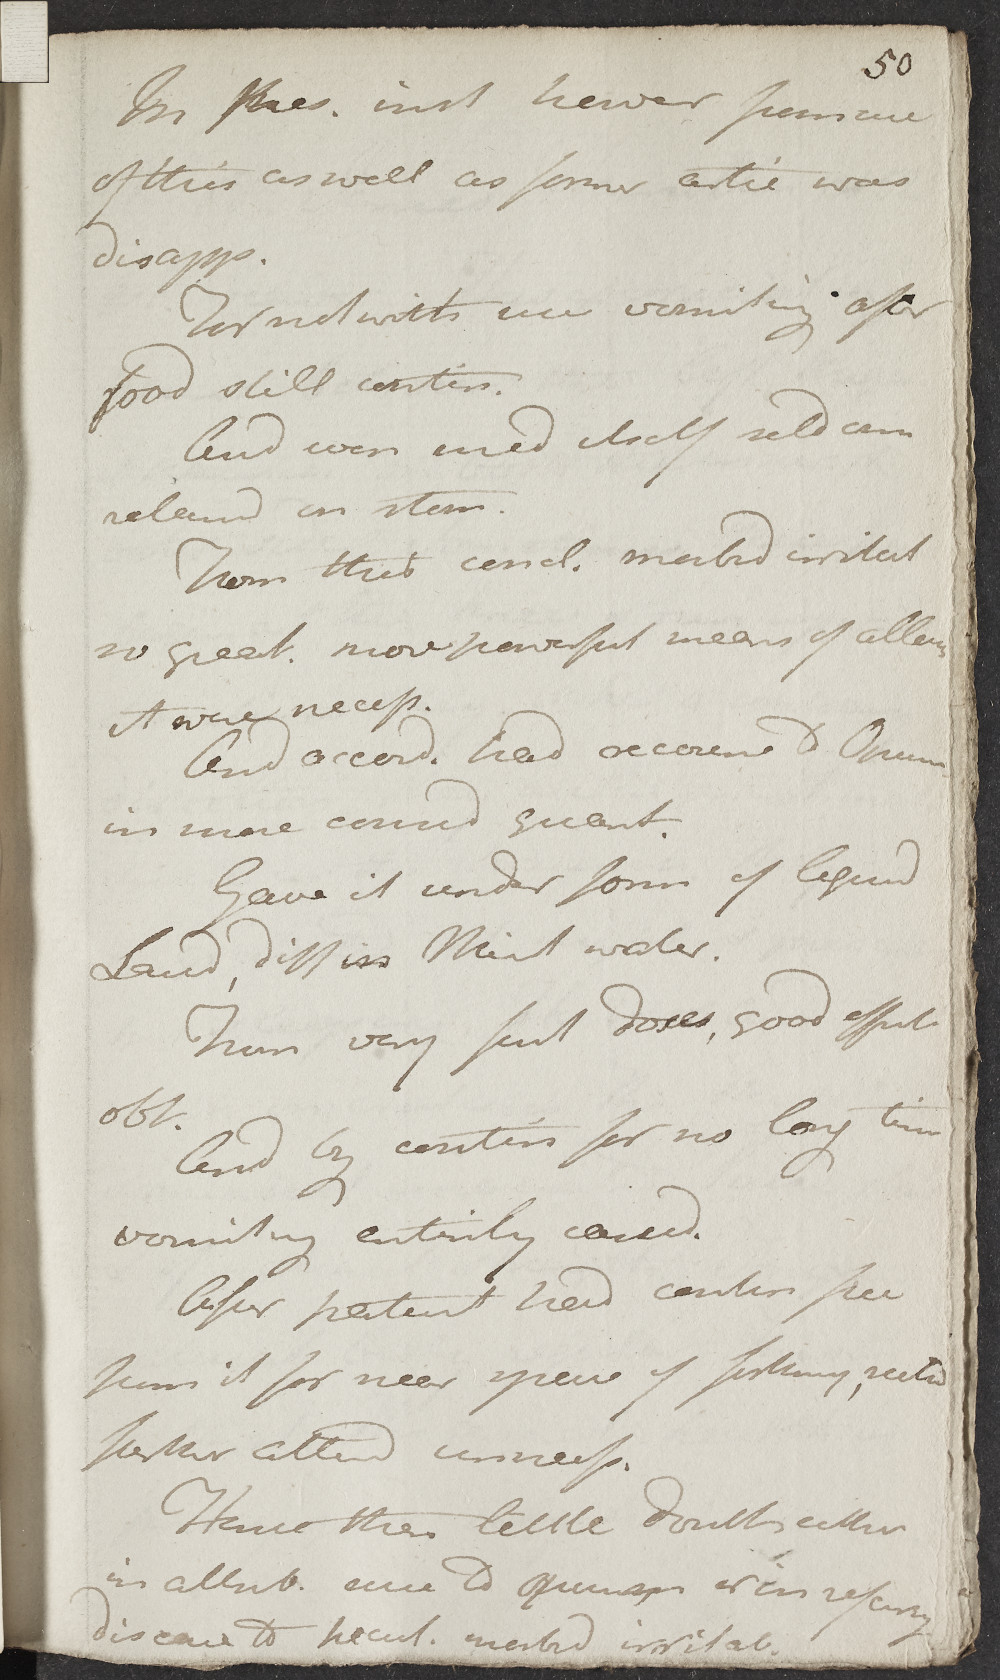 50
In Pres. inst hower from use
of this as well as former artic was
disapp.
For notwiths use vomiting after
food still contin.
And even med itself seldom
retaind on stom.
From this concl. morbd irritab
so great. more powerful means of allev
it were necess.
And accord. had recourse to Opium
in more consid quant.
Gave it under form of liquid
Laud, diff in Mint water.
From very first doses, good effects
obt.
And by contin for no long time
vomiting entirely ceased.
After patient had contin free
from it for near space of fortnig,
farther attend unness.
Hence then little doubt either
in attrib. cure to opium or in refering
disease to pecul. morbd irritab.